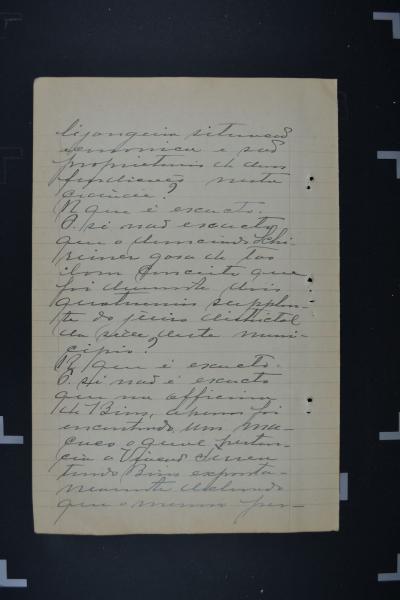 lisongeira situacaõ
economica e saõ
proprietarios de duas
fundiçoẽs nesta
cidade?
R. que é exacto.
P. si naõ é exacto
que o denunciado
gosa de tao
bom conceito que
foi durante dois
quatriennios supplen-
te do juizo districtal
da séde deste muni-
cipio?
R. que é exacto.
P. si naõ é exacto
que na officina
de Bins, apenas foi
encontrado um ma-
caco o qual perten-
cia a Viaçaõ Ferrea
tendo Bins exponta-
neamente declarado
que o mesmo per-